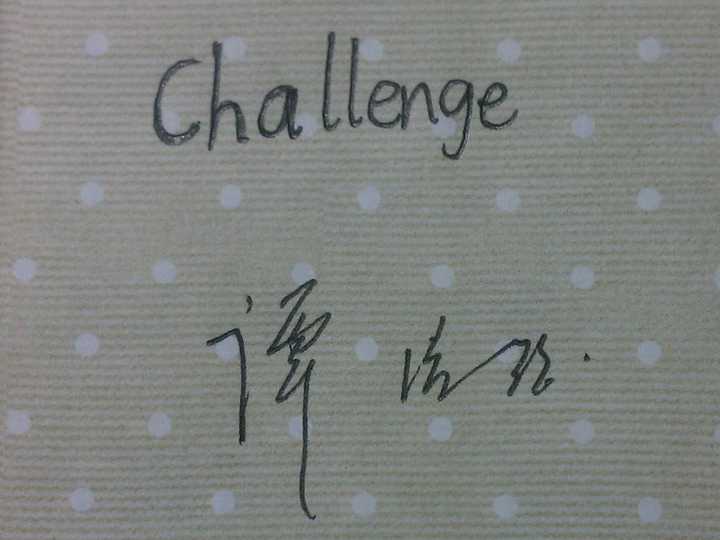 Challenge
谭